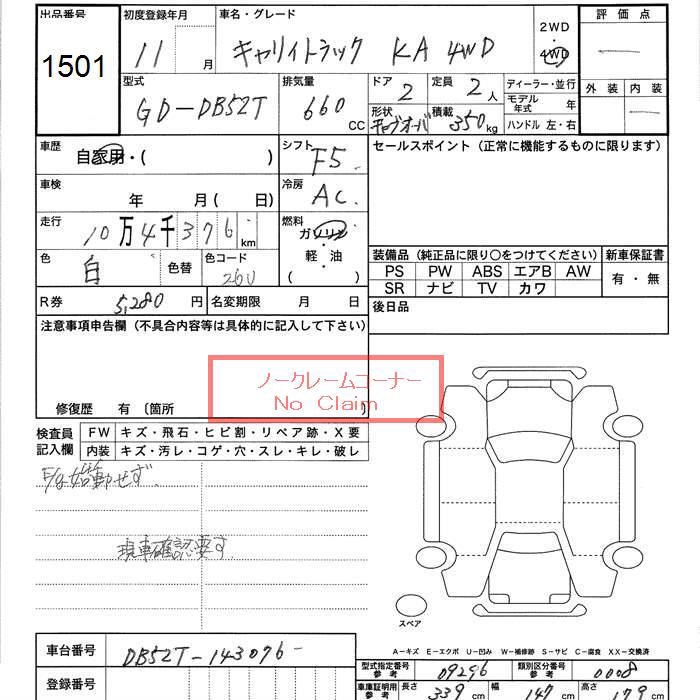 出品番号
1501
初度登録年月
11 月
車名・グレード
キャリイトラック KA 4WD
2WD
・
4WD
評価点
外装 内装
型式
GD-DB52T
排気量
660 CC
ドア
2
定員
2 人
形状
キャブオーバ
積載
350 kg
ディーラー・並行
モデル年式 年
ハンドル 左・右
車歴
自家用・( )
シフト
F5
セールスポイント(正常に機能するものに限ります)
車検
年 月(日)
冷房
AC
走行
10万4千376 km
燃料
ガソリン
軽・油
( )
色
白
色替
色コード
26U
装備品(純正品に限り○をつけてください)
新車保証書
PS PW ABS エアB AW
SR ナビ TV カワ
有・無
R券 5,280 円
名変期限 月 日
後日品
注意事項申告欄(不具合内容等は具体的に記入して下さい)
ノークレームコーナー
No Claim
修復歴 有〔箇所 〕
検査員
記入欄
FW キズ・飛石・ヒビ割・リペア跡・X要
内装 キズ・汚レ・コゲ・穴・スレ・キレ・破レ
始動せず.
現車確認要す.
スペア
A-キズ E-エクボ U-凹み W-補修跡 S-サビ C-腐食 XX-交換済
車台番号
DB52T-143076-
登録番号
型式指定番号
参考
09296
類別区分番号
参考
0008
車庫証明用
参考
長さ 339 cm
幅 147 cm
高さ 179 cm